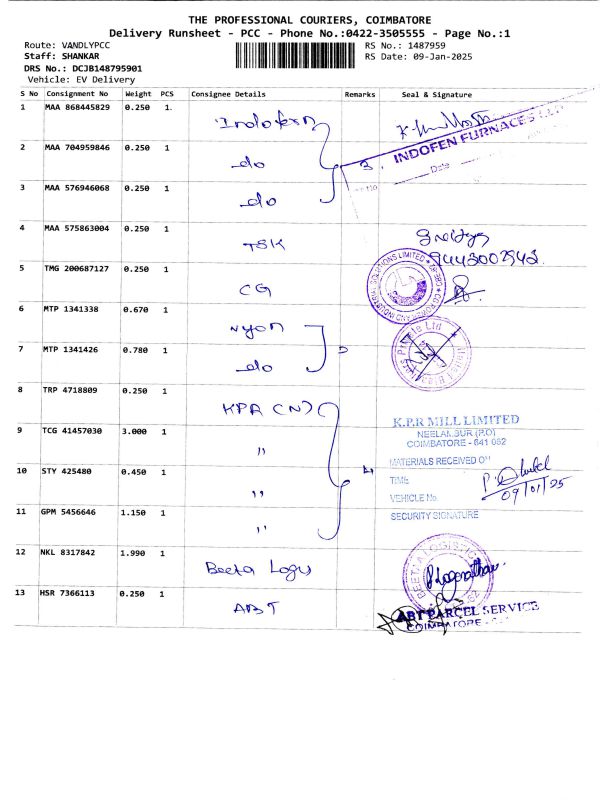 THE PROFESSIONAL COURIERS, COIMBATORE
Delivery Runsheet - PCC - Phone No.:0422-3505555 - Page No.:1
Route: VANDLYPCC RS No.: 1487959
Staff: SHANKAR RS Date: 09-Jan-2025
DRS No.: DCJB148795901
Vehicle: EV Delivery
S No Consignment No Weight PCS Consignee Details Remarks Seal & Signature
1 MAA 868445829 0.250 1. Indofern
INDOFEN FURNACES
Date
2 MAA 704959846 0.250 1 do 3
3 MAA 576946068 0.250 1 do
4 MAA 575863004 0.250 1 TSK
5 TMG 200687127 0.250 1 CG
INDUSTRIAL SOLUTIONS LIMITED
6 MTP 1341338 0.670 1 Nyon
7 MTP 1341426 0.780 1 do
Ltd
8 TRP 4718809 0.250 1 KPR (N)
K.P.R MILL LIMITED
NEELAMBUR (P.O)
COIMBATORE - 641 062
9 TCG 41457030 3.000 1 "
MATERIALS RECEIVED ON
10 STY 425480 0.450 1 " 4
TIME
VEHICLE No.
09/01/25
11 GPM 5456646 1.150 1 "
SECURITY SIGNATURE
12 NKL 8317842 1.990 1 Beeta Logis
BEETJA LOGISTIC
13 HSR 7366113 0.250 1 ABT
ABT PARCEL SERVICE
COIMBATORE